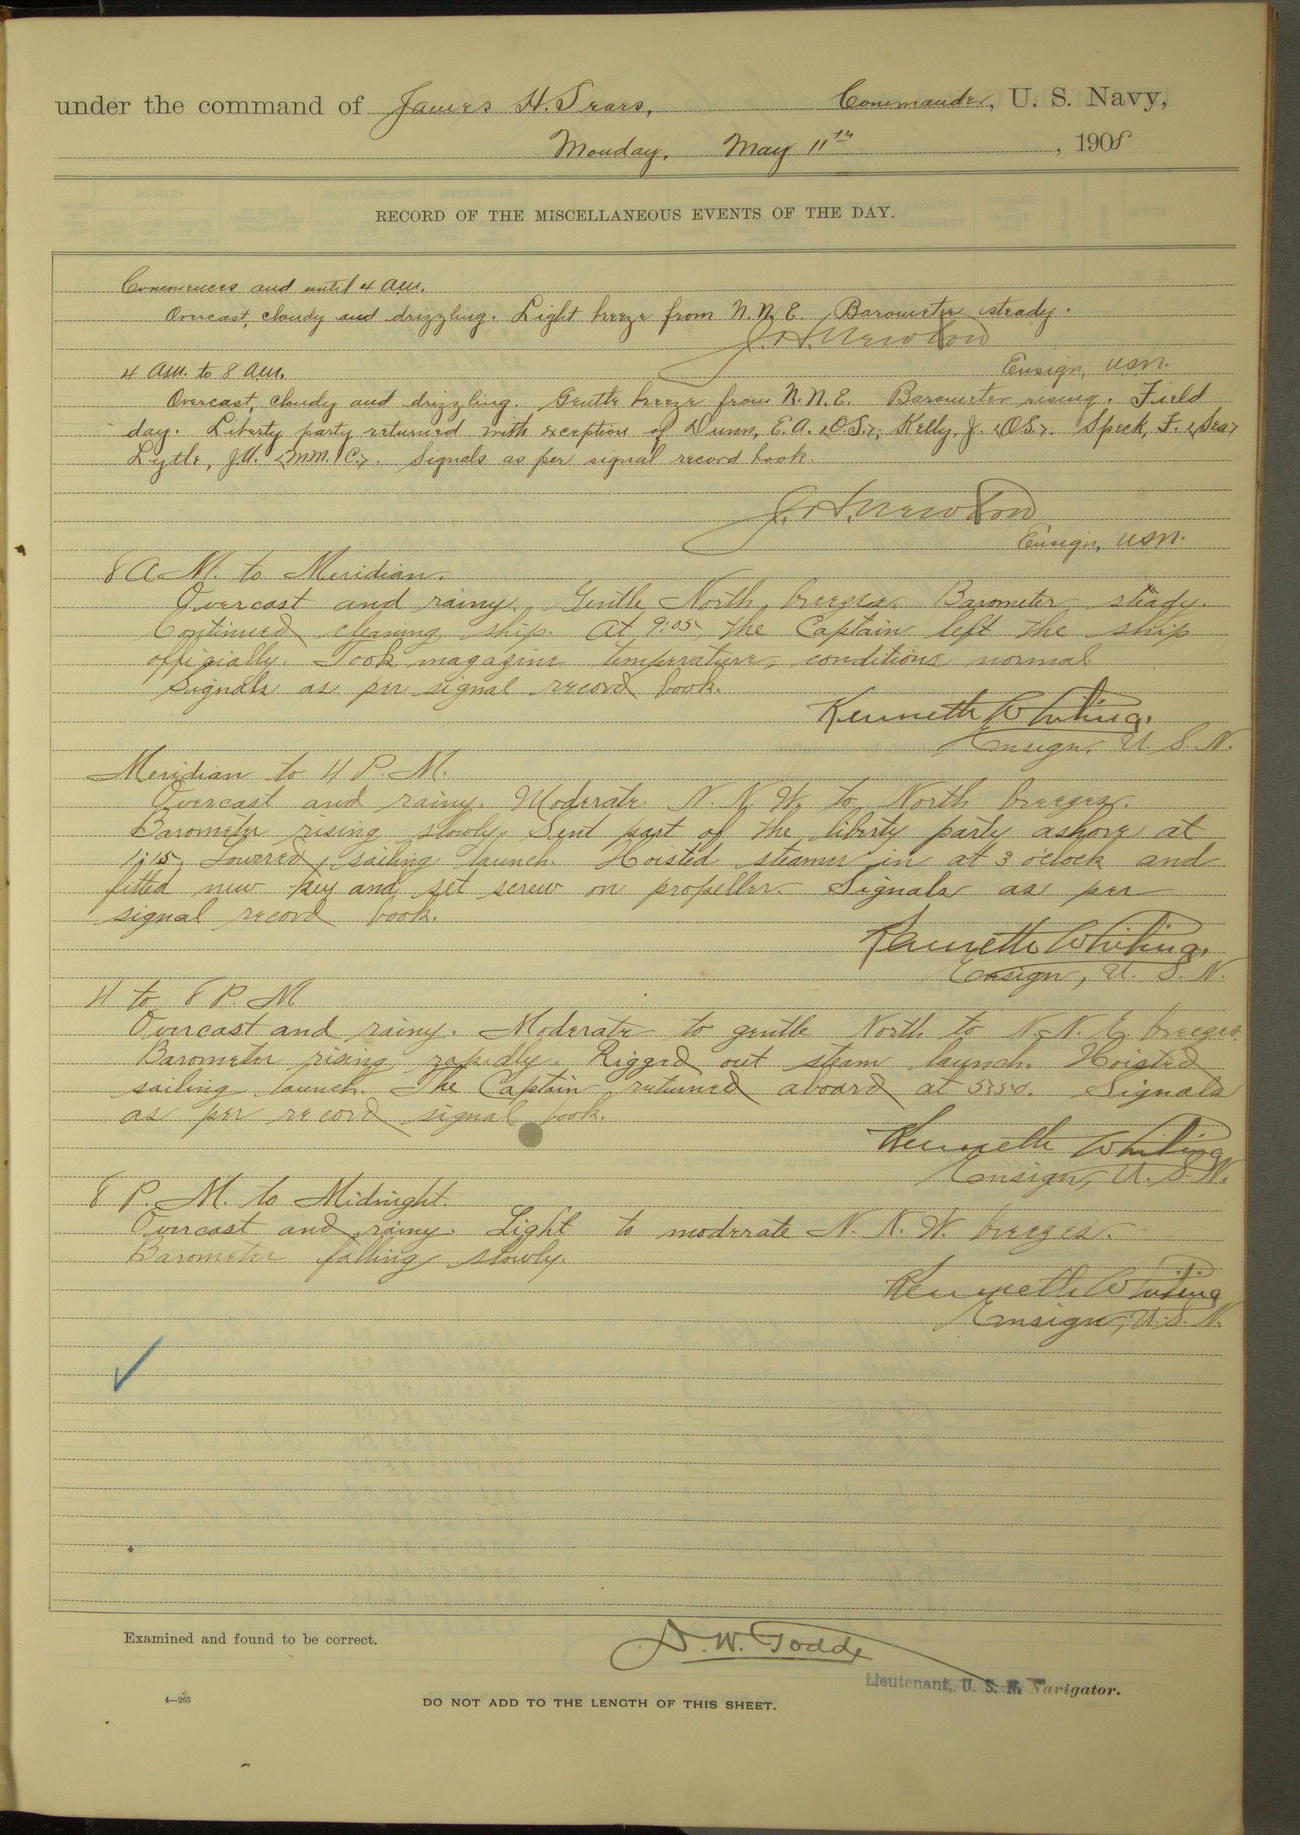 under the command of James H. Sears, Commander, U. S. Navy,
Monday, May 11th, 1908
RECORD OF THE MISCELLANEOUS EVENTS OF THE DAY.
Commences and until 4 a.m.
Overcast, cloudy and drizzling. Light breeze from N.N.E. Barometer steady.
J. H. Newton
Ensign, USN.
4 a.m. to 8 a.m.
Overcast, cloudy and drizzling. Gentle breeze from N.N.E. Barometer rising. Field
day. Liberty party returned with exception of Dunn, E.A. <O.S.>, Kelly, J. <O.S>. Speck, F. <Sea>
Lytle, J.A. <MM. 1C>. Signals as per signal record book.
J. H. Newton
Ensign, USN.
8 A M. to Meridian.
Overcast and rainy. Gentle North breezes. Barometer steady.
Continued cleaning ship. At 9:05, the Captain left the ship
officially. Took magazine temperature, conditions normal
Signals as per signal record book.
Kenneth Whiting.
Ensign, U. S. N.
Meridian to 4 P. M.
Overcast and rainy. Moderate N. N. W. to North breezes.
Barometer rising slowly. Sent part of the liberty party ashore at
1:15, Lowered sailing launch. Hoisted steamer in at 3 o'clock and
fitted new key and set screw on propeller. Signals as per
signal record book.
Kenneth Whiting.
Ensign, U. S. N.
4 to 8 P. M
Overcast and rainy. Moderate to gentle North to N. N. E. breezes.
Barometer rising rapidly. Rigged out steam launch. Hoisted
sailing launch. The Captain returned aboard at 5:50. Signals
as per record signal book.
Kenneth Whiting
Ensign, U. S. N.
8 P. M. to Midnight.
Overcast and rainy. Light to moderate N. N. W. breezes.
Barometer falling slowly.
Kenneth Whiting
Ensign, U. S. N.
Examined and found to be correct.
D. W. Todd
Lieutenant, U. S. N. Navigator.
4—265
DO NOT ADD TO THE LENGTH OF THIS SHEET.